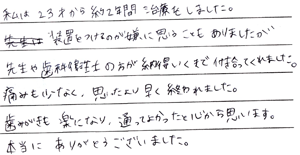 私は23才から約2年間治療をしました。
装置をつけるのが嫌に思うこともありましたが
先生や歯科衛生士の方が納得いくまで付き合ってくれました。
痛みも少なく、思ったより早く終われました。
歯みがきも楽になり、通ってよかったと心から思います。
本当にありがとうございました。